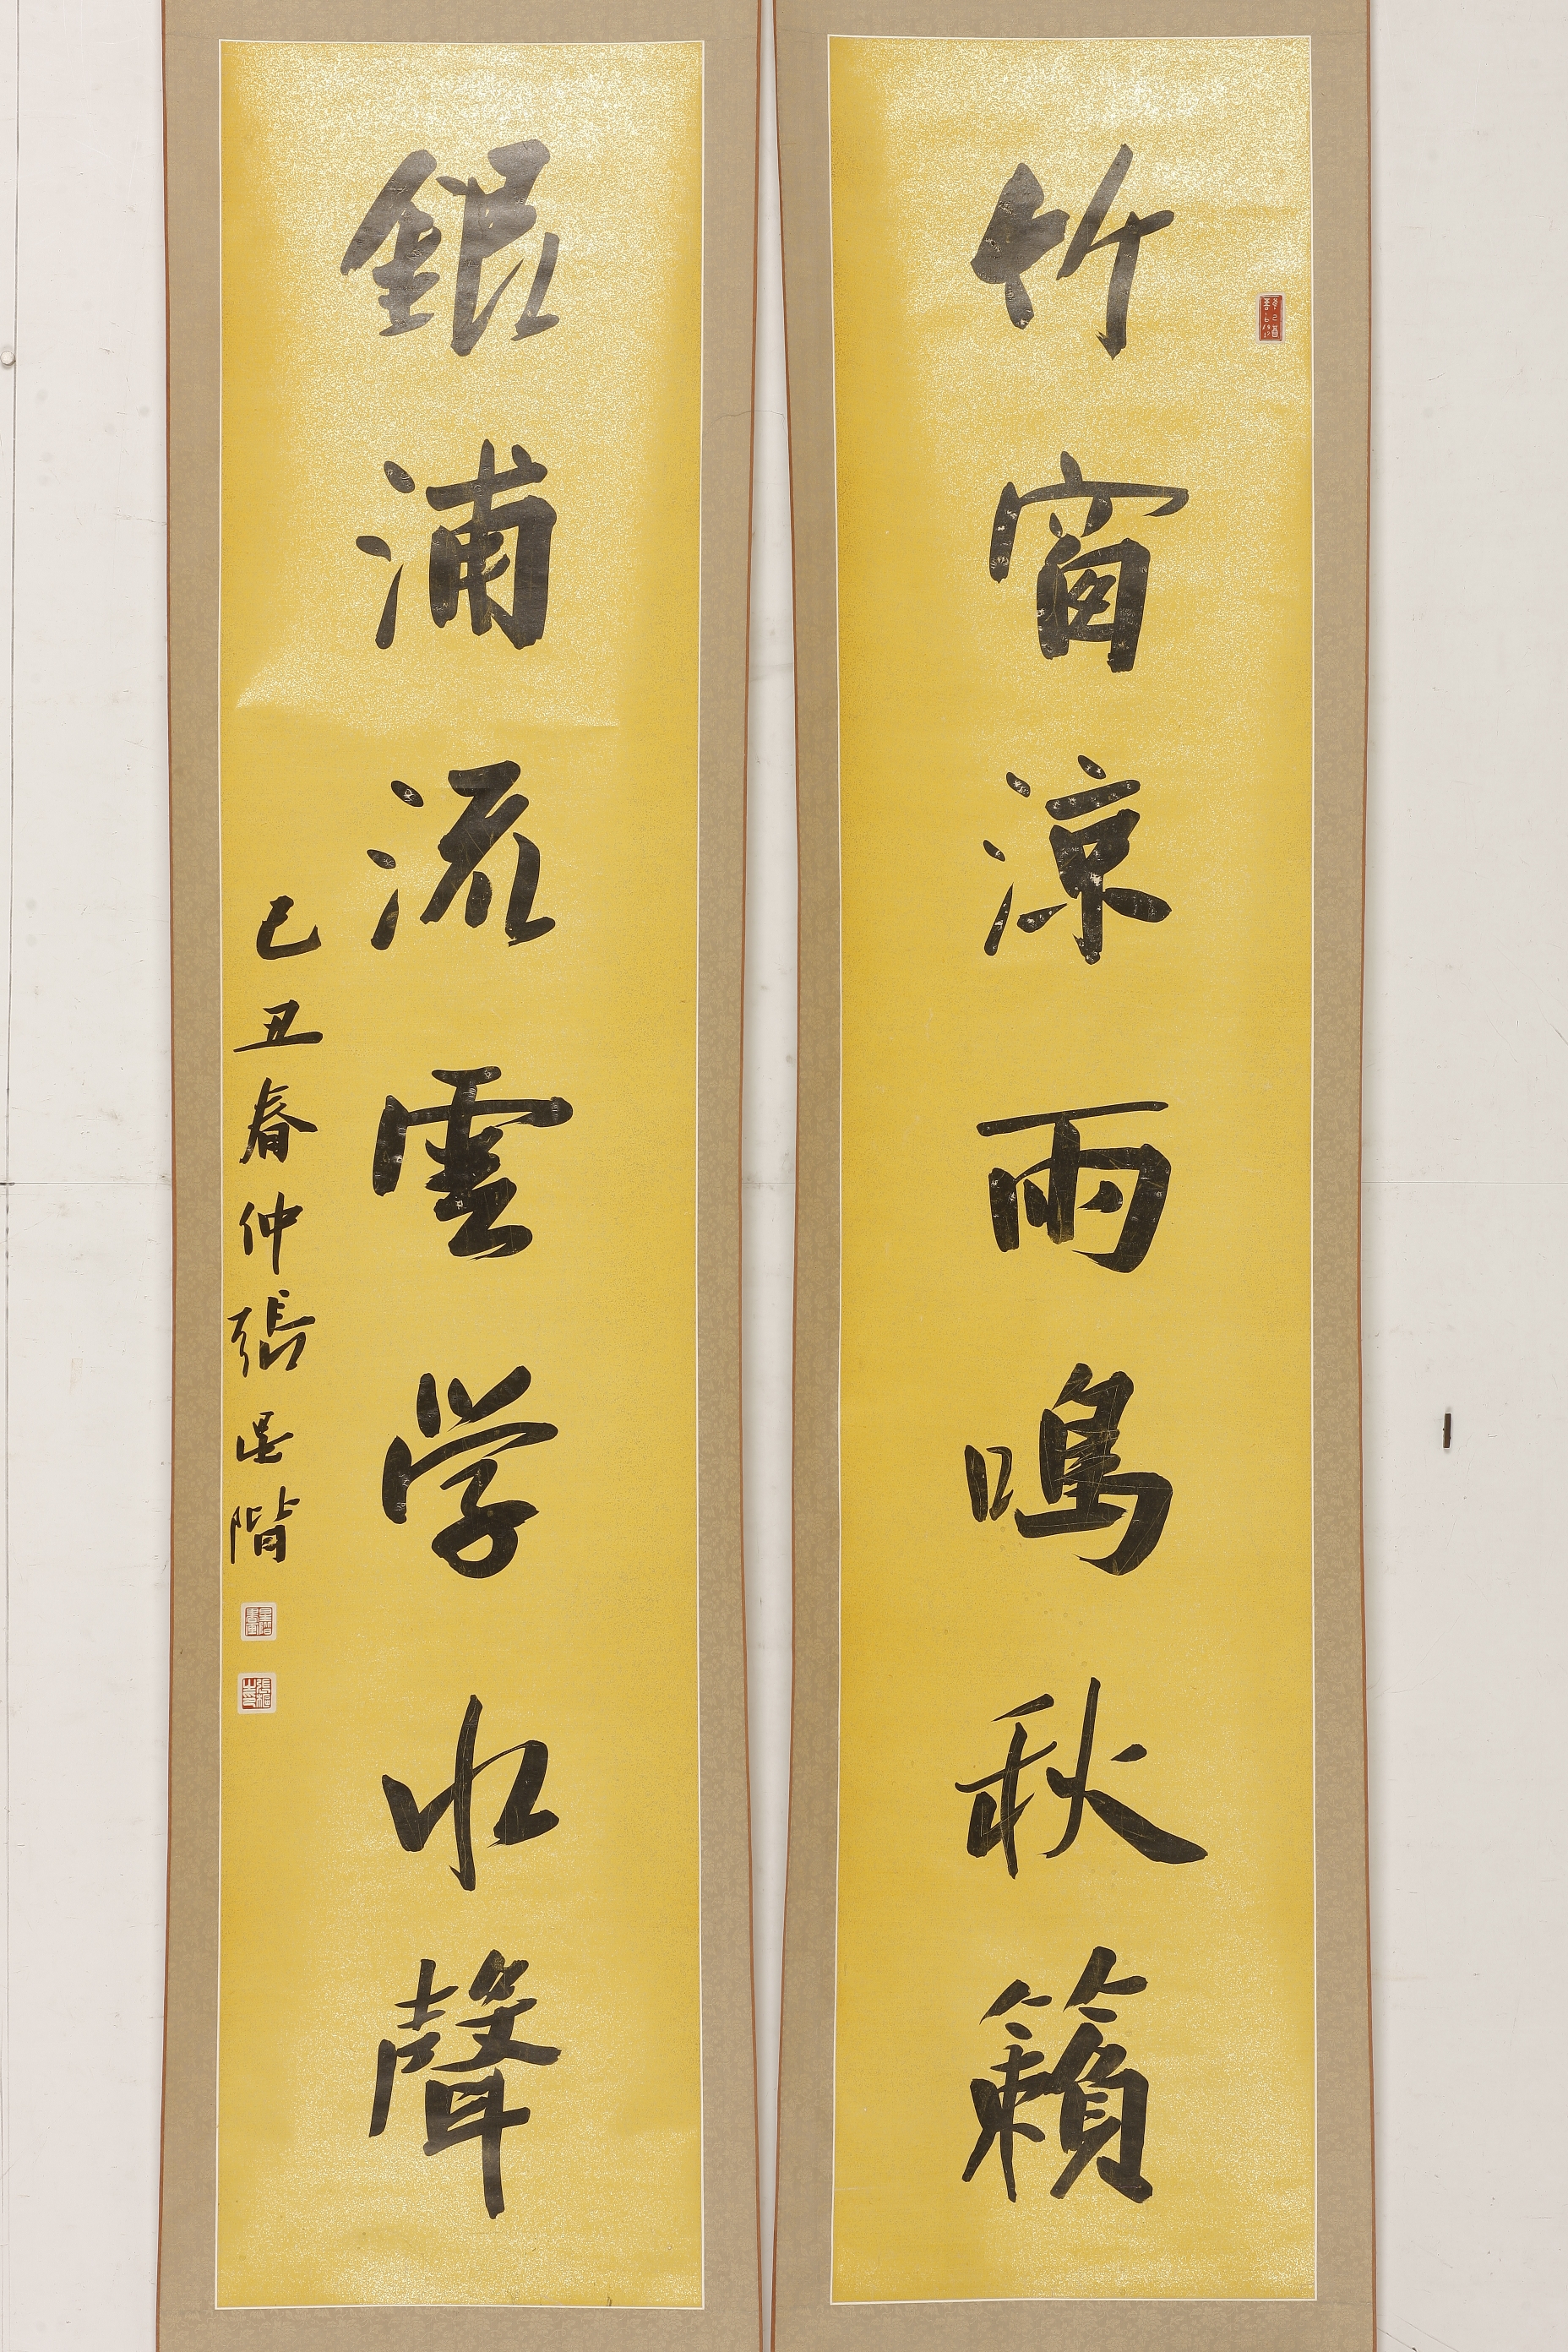 竹窗涼雨鳴秋籟
銀浦流雲学水聲
己丑春仲張星階